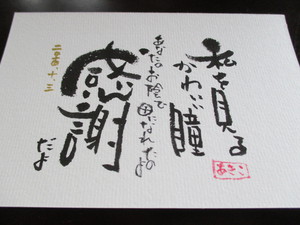 私を見る
かわいい瞳
あなたのお陰で
母になれたのよ
感謝
だよ
あきこ